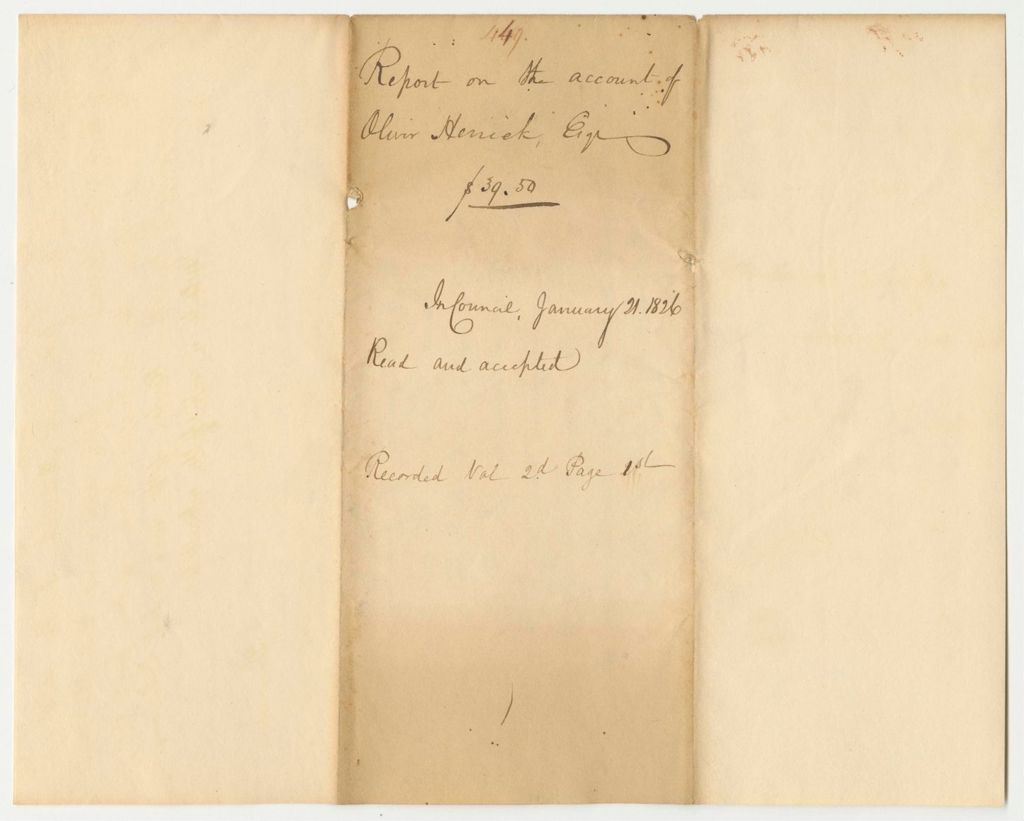 449.
Report on the account of
Oliver Herrick, Esqr
$39.50
In Council, January 21. 1826
Read and accepted
Recorded Vol 2d Page 1st